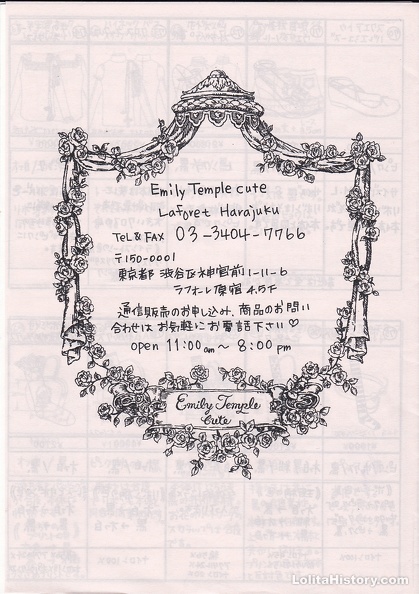 Emily Temple cute
Laforet Harajuku
TEL & FAX 03-3404-7766
〒150-0001
東京都 渋谷区神宮前1-11-6
ラフォーレ原宿 4.5F
通信販売のお申し込み、商品のお問い
合わせは お気軽にお電話下さい♡
open 11:00am〜8:00pm
Emily Temple
Cute
LolitaHistory.com